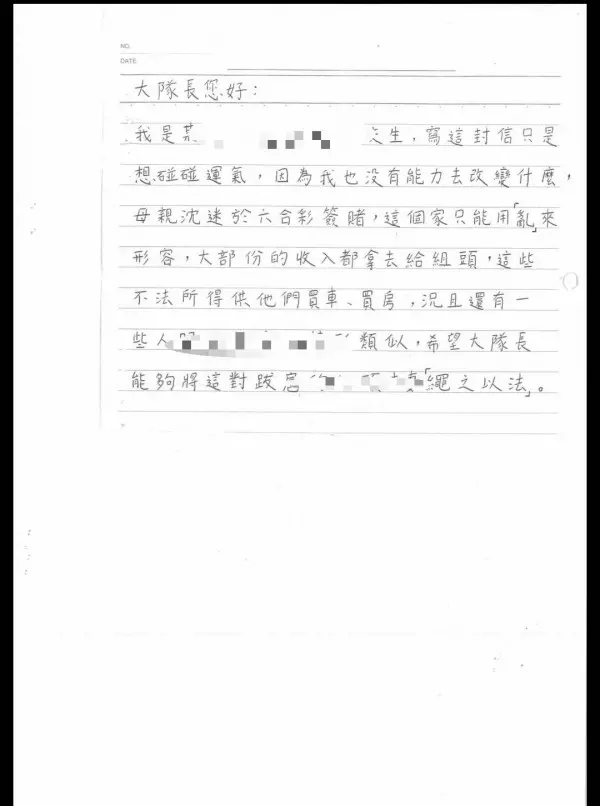 NO.
DATE
大隊長您好：
我是某 生，寫這封信只是
想碰碰運氣，因為我也没有能力去改變什麼，
母親沈迷於六合彩簽賭，這個家只能用「亂」來
形容，大部份的收入都拿去給組頭，這些
不法所得供他們買車、買房，況且還有一
些人 類似，希望大隊長
能夠將這對跋扈 「繩之以法」。